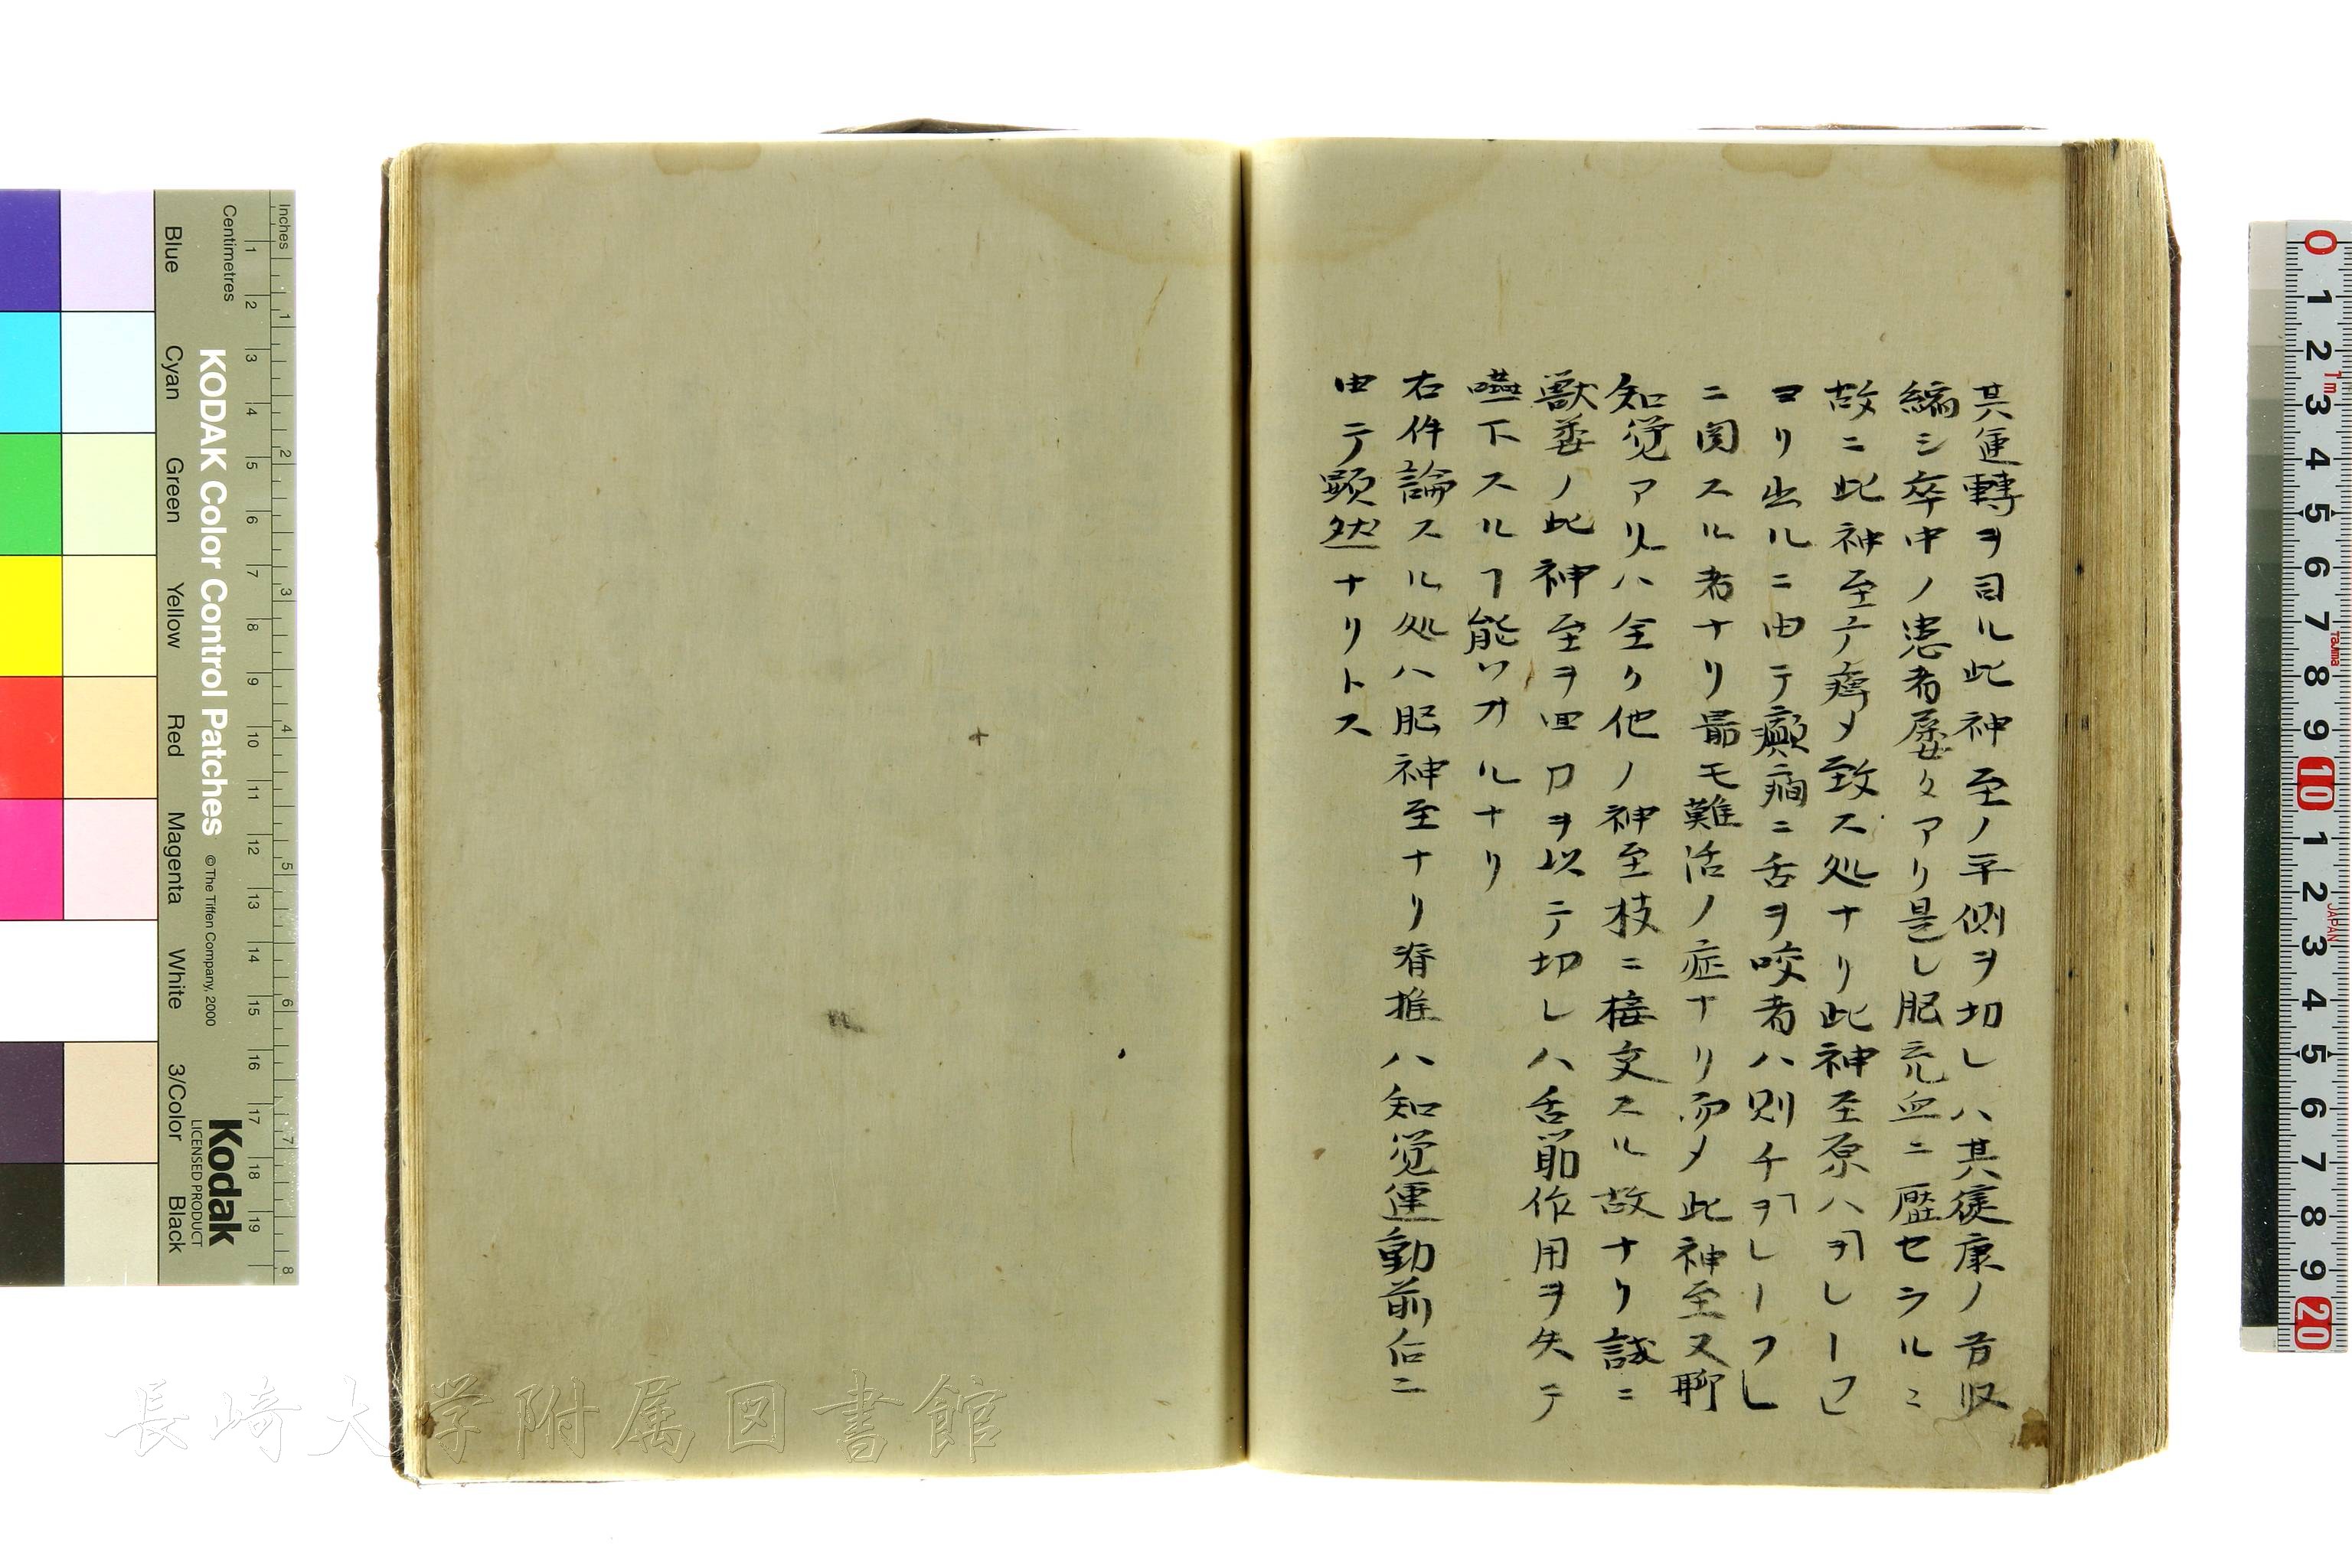 其運轉ヲ司ル此神至ノ半側ヲ切レハ其徒康ノ方収
編シ卒中ノ患者屡々アリ是レ脳充血ニ壓セラルニ
故ニ此神至テ痺メ致ス処ナリ此神至原ハヲレーフ
ヨリ出ルニ由テ癲癇ニ舌ヲ咬者ハ則チヲレーフレ
ニ関スル者ナリ最モ難活ノ症ナリ而メ此神至又聊
知覚アリ ハ全ク他ノ神至枝ニ接文スル故ナリ試ニ
獣 ノ此神至ヲ 口ヲ以テ切レハ舌筋作用ヲ失テ
嚥下スルヿ能ハサルナリ
右件論スル処ハ脳神至ナリ脊推ハ知覚運動前后ニ
由テ顕然ナリトス
Inches
Centimetres
KODAK Color Control Patches
©The Tiffen Company, 2000
Kodak
LICENSED PRODUCT
Blue
Cyan
Green
Yellow
Red
Magenta
White
3/Color
Black
1 2 3 4 5 6 7 8 9 10 11 12 13 14 15 16 17 18 19
1 2 3 4 5 6 7 8
0 1 2 3 4 5 6 7 8 9 10 1 2 3 4 5 6 7 8 9 20
1m
Tajima
JAPAN
長崎大学附属図書館